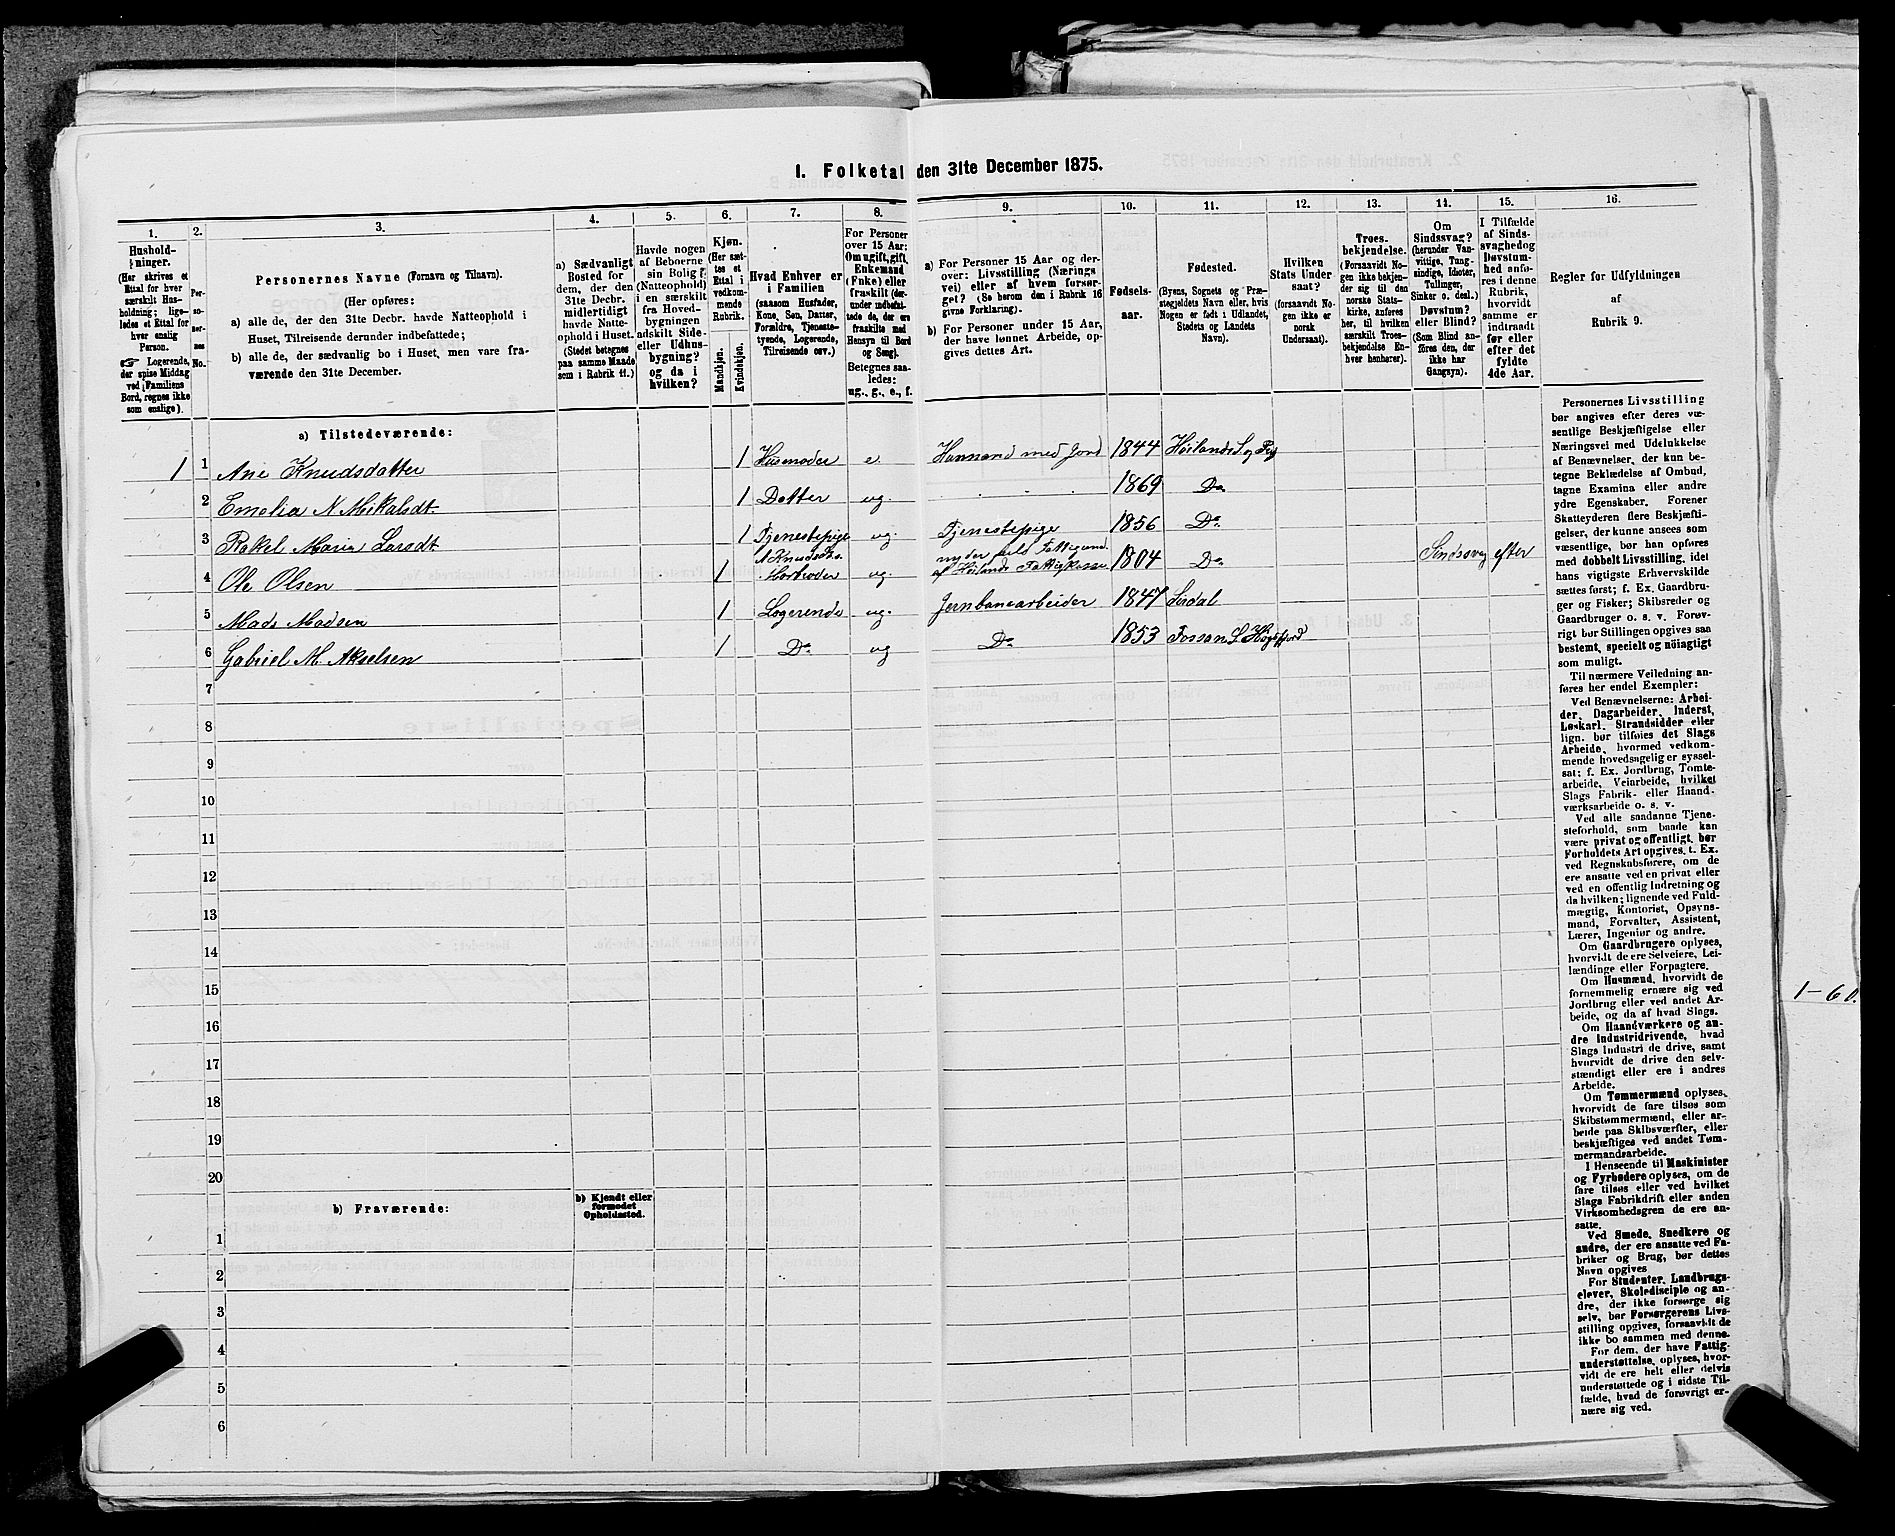 I. Folketal den 31te December 1875.
1.
2.
3.
4.
5.
6.
7.
8.
9.
10.
11.
12.
13.
14.
15.
16.
Hushold-
ninger.
(Her skrives et
Ettal for hver
særskilt Hus-
holdning; lige-
ledes et Ettal for
hver enslig
Person.
☞ Logerende,
der spise Middag
ved Familiens
Bord, regnes ikke
som enslige).
Per-
so-
ner-
nes
No.
Personernes Navne (Fornavn og Tilnavn).
(Her opføres:
a) alle de, der den 31te Decbr. havde Natteophold i
Huset, Tilreisende derunder indbefattede;
b) alle de, der sædvanlig bo i Huset, men vare fra-
værende den 31te December.
a) Sædvanligt
Bosted for
dem, der den
31te Decbr.
midlertidigt
havde Natte-
ophold i Huset.
(Stedet betegnes
paa samme Maade
som i Rubrik 11.)
Havde nogen
af Beboerne
sin Bolig
(Natteophold)
i en særskilt
fra Hoved-
bygningen
adskilt Side-
eller Udhus-
bygning?
og da i
hvilken?
Kjøn.
(Her sæt-
tes et
Ettal i
vedkom-
mende
Rubrik.
Mandkjøn.
Kvindekjøn.
Hvad Enhver er
i Familien
(saasom Husfader,
Kone, Søn, Datter,
Forældre, Tjeneste-
tyende, Logerende,
Tilreisende osv.)
For Personer
over 15 Aar:
Om ugift, gift,
Enkemand
(Enke) eller
fraskilt (der-
under indbefat-
tede de, der ere
fraskilte med
Hensyn til Bord
og Seng).
Betegnes saa-
ledes:
ug., g., e., f.
a) For Personer 15 Aar og der-
over: Livsstilling (Nærings
vei) eller af hvem forsør-
get? (Se herom den i Rubrik 16
givne Forklaring).
b) For Personer under 15 Aar,
der have lønnet Arbeide, op-
gives dettes Art.
Fødsels-
aar.
Fødested.
(Byens, Sognets og Præ-
stegjeldets Navn eller, hvis
Nogen er født i Udlandet,
Stedets og Landets
Navn).
Hvilken
Stats Under
saat?
(forsaavidt No-
gen ikke er
norsk
Undersaat).
Troes-
bekjendelse.
(Forsaavidt No-
gen ikke bekjen-
der sig til den
norske Stats-
kirke, anføres
her, til hvilken
særskilt Troes-
bekjendelse En-
hver henhører).
Om
Sindssvag?
(herunder Van-
vittige, Tung-
sindige, Idioter,
Tullinger,
Sinker o. desl.)
Døvstum?
eller Blind?
(Som Blind an-
føres den, der
ikke har
Gangsyn).
I Tilfælde
af Sinds-
svaghed og
Døvstum-
hed anfø-
res i denne
Rubrik,
hvorvidt
samme er
indtraadt
før eller
efter det
fyldte
4de Aar.
Regler for Udfyldningen
af
Rubrik 9.
a) Tilstedeværende:
1 1 Ane Knudsdatter 1 Husmoder e. Huusmand med Jord 1844 Høilands S. og Prg
2 Emelia N Mikalsdt 1 Datter ug. 1869 Do
3 Rakel Maria Larsdt 1 Tjenestepige ug. Tjenestepige 1856 Do
4 Ole Olsen 1 ug. af Høilands Fattigkasse 1804 Do Sindssvag efter
5 Mads Madsen 1 Logerende ug. Jernbanearbeider 1847 Sirdal
6 Gabriel M. Akselsen 1 Do ug Do 1853 Fossan S. Høgsfjord
7
8
9
10
11
12
13
14
15
16
17
18
19
20
b) Fraværende:
b) Kjendt eller
formodet
Opholdssted.
1
2
3
4
5
6
Personernes Livsstilling
bør angives efter deres væ-
sentlige Beskjæftigelse eller
Næringsvei med Udelukkelse
af Benævnelser, der kun be-
tegne Beklædelse af Ombud,
tagne Examina eller andre
ydre Egenskaber. Forener
Skatteyderen flere Beskjæfti-
gelser, der kunne ansees som
væsentlige, bør han opføres
med dobbelt Livsstilling, idet
hans vigtigste Erhvervskilde
sættes først; f. Ex. Gaardbru-
ger og Fisker; Skibsreder og
Gaardbruger o. s. v. Forøv-
rigt bør Stillingen opgives saa
bestemt, specielt og nøiagtigt
som muligt.
Til nærmere Veiledning an-
føres her endel Exempler:
Ved Benævnelserne: Arbei-
der, Dagarbeider, Inderst,
Løskarl, Strandsidder eller
lign. bør tilføies det Slags
Arbeide, hvormed vedkom-
mende hovedsagelig er syssel-
sat; f. Ex. Jordbrug, Tomte-
arbeide, Veiarbeide, hvilket
Slags Fabrik- eller Haand-
værksarbeide o. s. v.
Ved alle saadanne Tjene-
steforhold, som baade kan
være privat og offentligt, bør
Forholdets Art opgives, t. Ex.
ved Regnskabsførere, om de
ere ansatte ved en privat eller
ved en offentlig Indretning og
da hvilken; lignende ved Fuld-
mægtig, Kontorist, Opsyns-
mand, Forvalter, Assistent,
Lærer, Ingeniør og andre.
Om Gaardbrugere oplyses,
hvorvidt de ere Selveiere, Lei-
lændinge eller Forpagtere.
Om Husmænd, hvorvidt de
fornemmelig ernære sig ved
Jordbrug eller ved andet Ar-
beide, og da af hvad Slags.
Om Haandværkere og an-
dre Industridrivende, hvad
Slags Industri de drive, samt
hvorvidt de drive den selv-
stændigt eller ere i andres
Arbeide.
Om Tømmermænd oplyses,
hvorvidt de fare tilsøs som
Skibstømmermænd, eller ar-
beide paa Skibsværfter, eller
beskjæftiges ved andet Tøm-
mermandsarbeide.
I Henseende til Maskinister
og Fyrbødere oplyses, om de
fare tilsøs eller ved hvilket
Slags Fabrikdrift eller anden
Virksomhedsgren de ere an-
satte.
Ved Smede, Snedkere og
andre, der ere ansatte ved Fa-
briker og Brug, bør dettes
Navn opgives
For Studenter, Landbrugs-
elever, Skoledisciple og an-
dre, der ikke forsørge sig
selv, bør Forsørgerens Livs-
stilling opgives, forsaavidt de
ikke bo sammen med denne.
For dem, der have Fattig-
understøttelse, oplyses, hvor-
vidt de ere helt eller delvis
understøttede og i sidste Til-
fælde, hvad de forøvrigt er-
nære sig ved.
1-60.